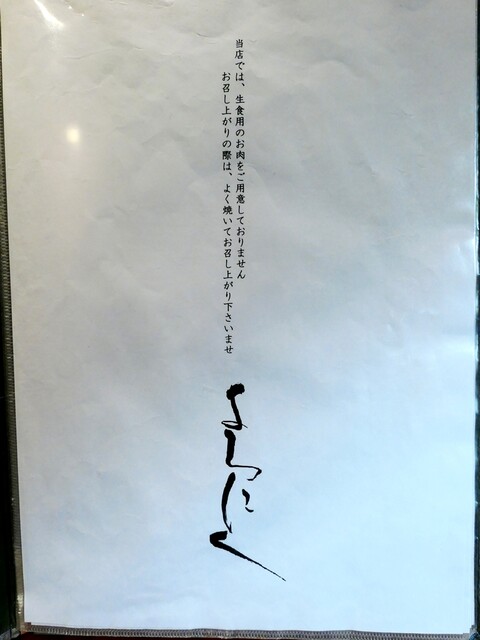 当店では、生食用のお肉をご用意しておりません
お召し上がりの際は、よく焼いてお召し上がり下さいませ
よろにく